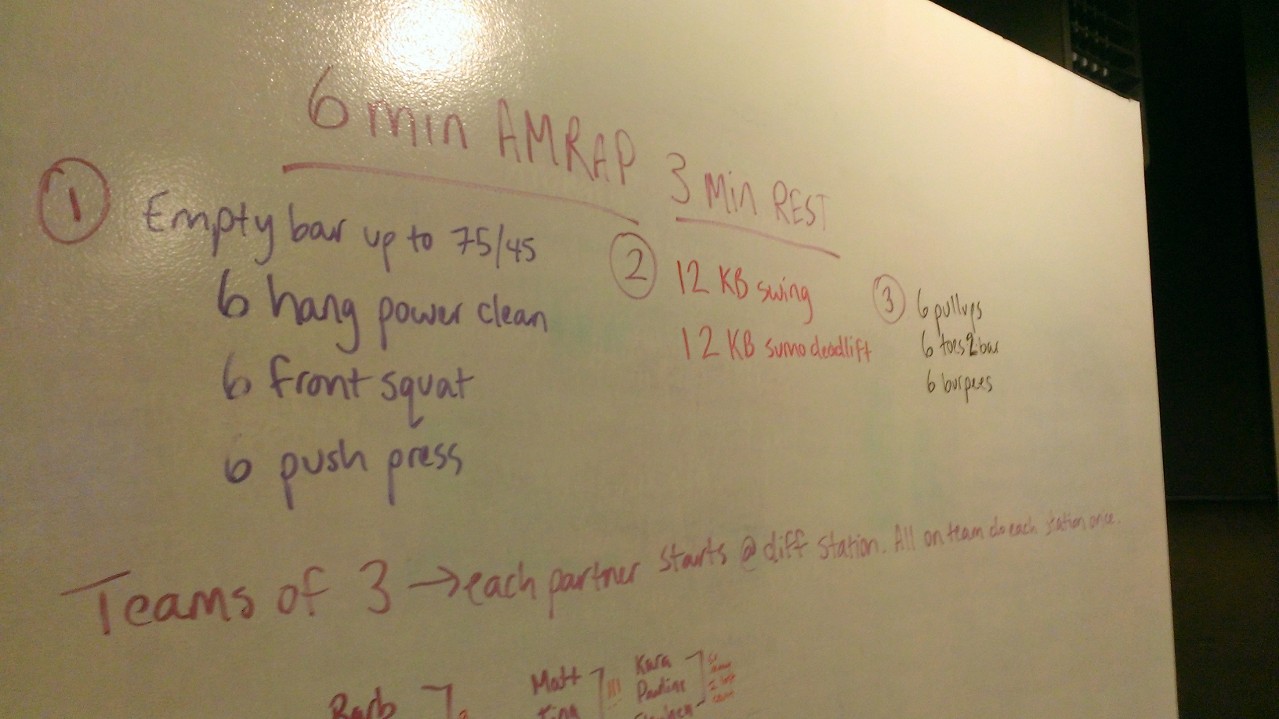 6 min AMRAP 3 Min REST
1 Empty bar up to 75/45
6 hang power clean
6 front squat
6 push press
2 12 KB swing
12 KB sumo deadlift
3 6 pullups
6 toes2bar
6 burpees
Teams of 3 → each partner starts @ diff station. All on team do each station once.
Barb
Matt
Tina
Kara
Pauline
Stephen